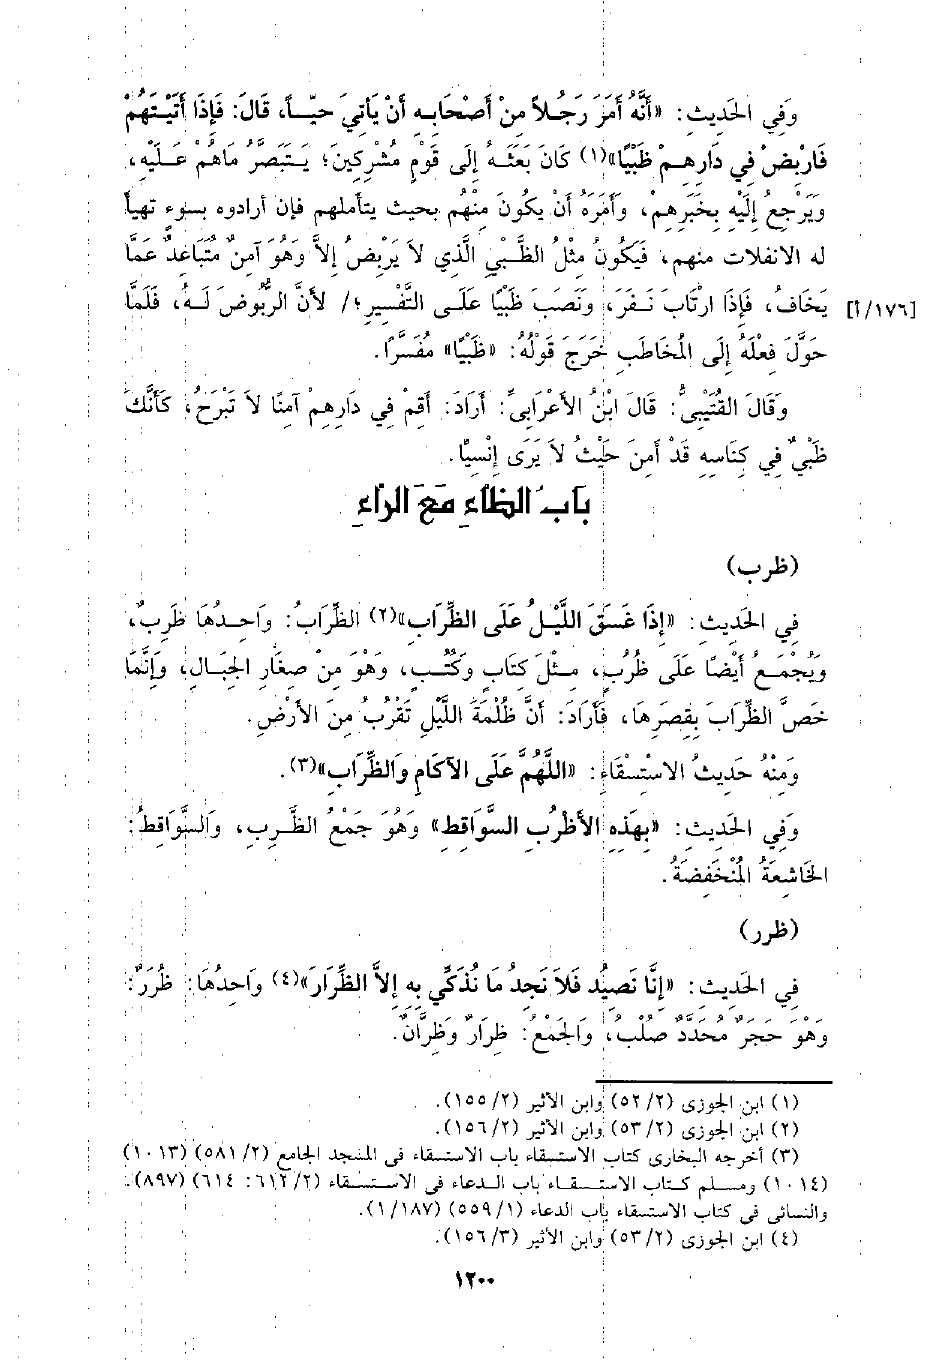 وَفِي الحَدِيثِ: «أَنَّهُ أَمَرَ رَجُلاً مِنْ أَصْحَابِهِ أَنْ يَأتِيَ حيّاً، قَالَ: فَإِذَا أَتَيْتَهُمْ
فَارْبِضْ فِي دَارِهِمْ ظَبْيًا»(١) كَانَ بَعَثَهُ إِلَى قَوْمٍ مُشْرِكِينَ؛ يَتَبَصَّرُ مَاهُمْ عَلَيْهِ،
وَيَرْجِعُ إِلَيْهِ بِخَبَرِهِم، وَأَمَرَهُ أَنْ يكُونَ مِنْهُم بحيث يتأملهم فإن أرادوه بسوءٍ تهيأ
له الانفلات منهم، فَيَكُونُ مِثْلُ الظَّبْيِ الَّذِي لاَ يَرْبِضُ إِلاَّ وَهُوَ آمِنٌ مُتَبَاعِدٌ عَمَّا
يَخَافُ، فَإِذَا ارْتَابَ نَفَرَ، وَنَصَبَ ظَبْيًا عَلَى التَّفْسِيرِ؛/ لأَنَّ الرُّبُوضَ لَهُ، فَلَمَّا [١٧٦/أ]
حَوَّلَ فِعْلَهُ إِلَى المُخَاطَبِ خَرَجَ قَوْلُهُ: «ظَبْيًا» مُفَسَّرًا.
وَقَالَ القُتَيْبِيُّ: قَالَ ابْنُ الأَعْرَابِيِّ: أَرَادَ: أَقِمْ فِي دَارِهِمْ آمِنًا لاَ تَبْرَحْ، كَأَنَّكَ
ظَبْيٌ فِي كِنَاسِهِ قَدْ أَمِنَ حَيْثُ لاَ يَرَى إِنْسِيًا.
بَابُ الظَاءِ مَعَ الرَاءِ
(ظرب)
فِي الحَدِيثِ: «إِذَا غَسَقَ اللَّيْلُ عَلَى الظِّرَابِ»(٢) الظِّرَابُ: وَاحِدُهَا ظَرِبٌ،
وَيُجْمَعُ أَيْضًا عَلَى ظُرُبٍ، مِثْلَ كِتَابٍ وَكُتُبٍ، وَهْوَ مِنْ صِغَارِ الجِبَالِ، وَإِنَّمَا
خَصَّ الظِّرَابَ بِقِصَرِهَا، فَأَرَادَ: أَنَّ ظُلْمَةَ اللَّيْلِ تَقْرُبُ مِنَ الأَرْضِ.
وَمِنْهُ حَدِيثُ الاسْتِسْقَاءِ: «اللَّهُمَّ عَلَى الآكَامِ وَالظِّرَابِ»(٣).
وَفِي الحَدِيثِ: «بِهَذِهِ الأَظْرُبِ السَّوَاقِطِ» وَهُوَ جَمْعُ الظَّرِبِ، وَالسَّوَاقِطُ:
الخَاشِعَةُ المُنْخَفِضَةُ.
(ظرر)
فِي الحَدِيثِ: «إِنَّا نَصِيدُ فَلاَ نَجِدُ مَا نُذَكِّي بِهِ إِلاَّ الظِّرَارَ»(٤) وَاحِدُهَا: ظُرَرٌ:
وَهْوَ حَجَرٌ مُحَدَّدٌ صُلْبٌ، وَالجَمْعُ: ظِرَارٌ وَظِرَّانٌ.
(١) ابن الجوزى (٥٢/٢) وابن الأثير (١٥٥/٢).
(٢) ابن الجوزى (٥٣/٢) وابن الأثير (١٥٦/٢).
(٣) أخرجه البخارى كتاب الاستسقاء باب الاستسقاء فى المسجد الجامع (٥٨١/٢) (١٠١٣)
(١٠١٤) ومسلم كتاب الاستسقاء باب الدعاء فى الاستسقاء (٦١٢/٢: ٦١٤) (٨٩٧).
والنسائى فى كتاب الاستسقاء باب الدعاء (٥٥٩/١) (١/١٨٧).
(٤) ابن الجوزى (٥٣/٢) وابن الأثير (١٥٦/٣).
١٢٠٠